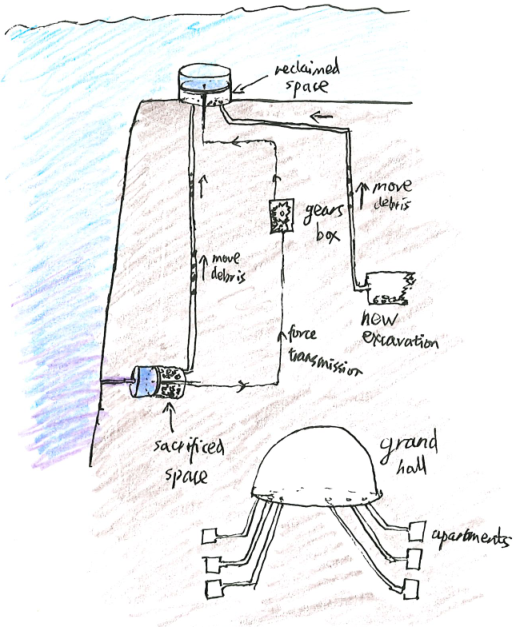 reclaimed
space
move
debris
gears
box
move
debris
new
excavation
force
transmission
sacrificed
space
grand
hall
apartments